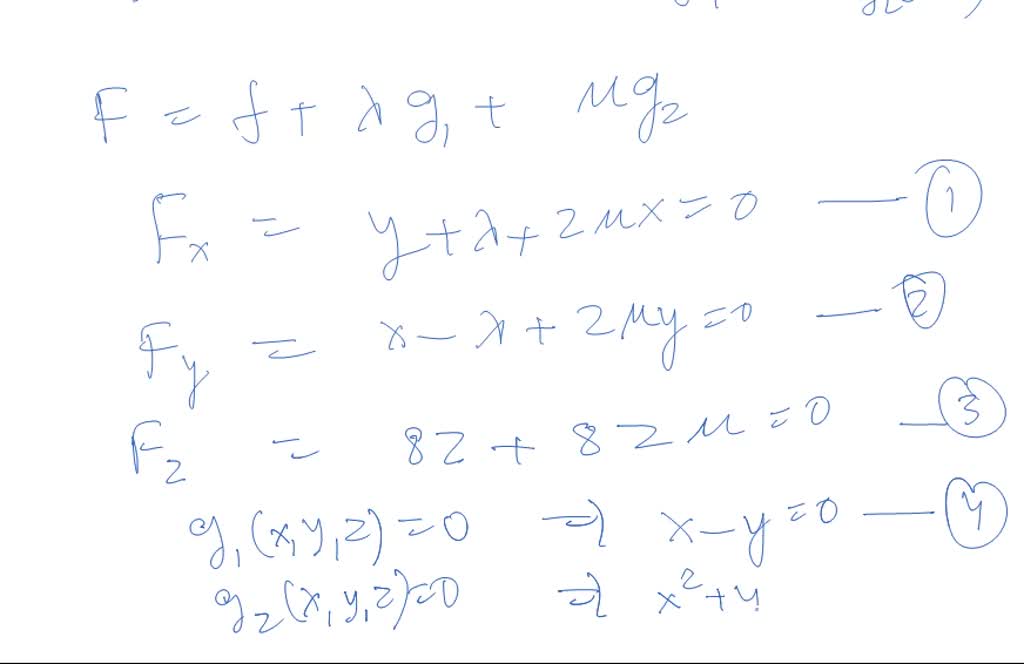 F = f + λ g₁ + μ g₂
Fₓ = y + λ + 2μx = 0 — ①
F_y = x − λ + 2μy = 0 — ②
F_z = 8z + 8zμ = 0 — ③
g₁(x, y, z) = 0 ⇒ x − y = 0 — ④
g₂(x, y, z) = 0 ⇒ x² + y